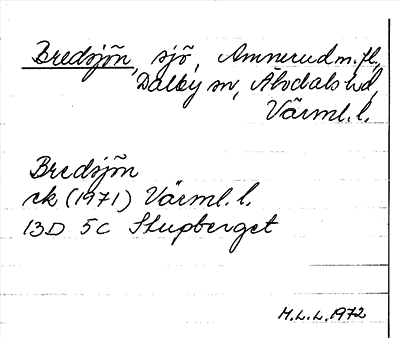 Bredsjön, sjö, Amnerud m. fl.,
Dalby sn, Älvdals hd,
Värml. l.
Bredsjön
ek (1971) Värml. l.
13D 5c Stupberget
M.L.L. 1972